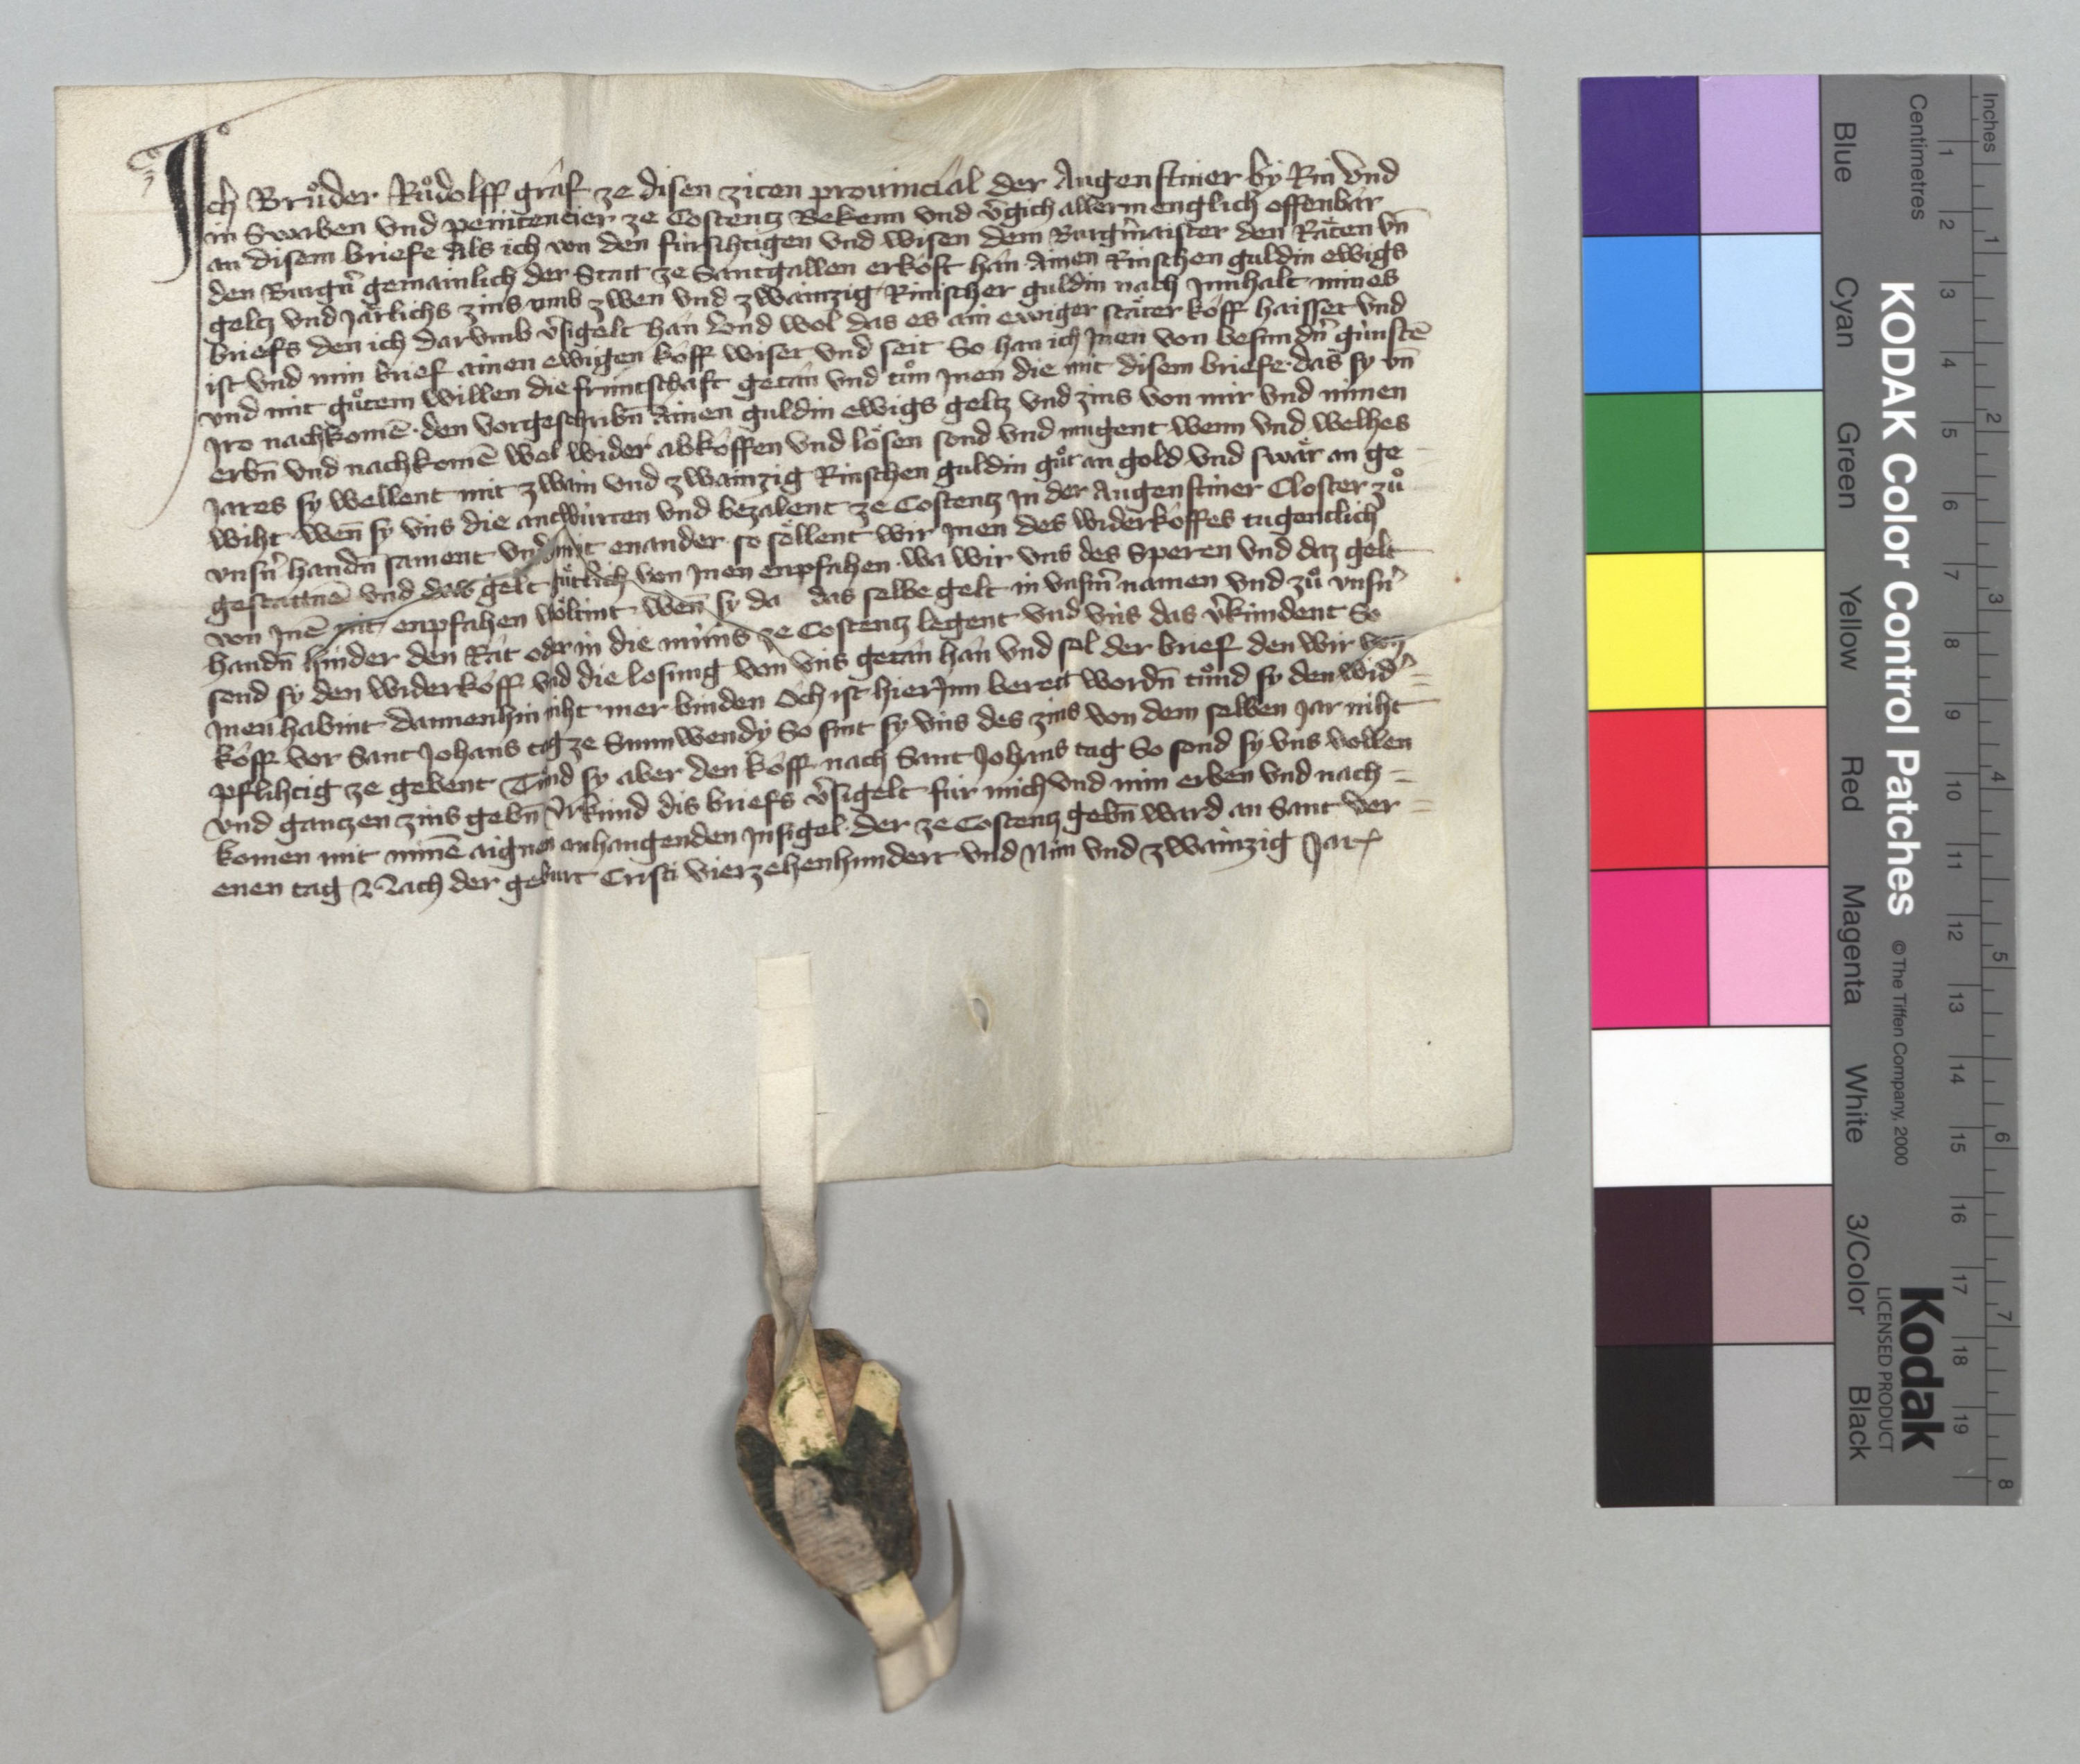 Ich Brůder Růdolff gráf ze disen ziten prouincial der Augenstiner by Rin vnd
in Swaben vnd penitencier ze Costentz Bekenn vnd v̄gich allermenglich offenbár
an disem briefe Als ich von den fúrsihtigen vnd wisen dem Burgm̄aister den Räten vn̄
den Burgn̄ gemainlich der Statt ze Santgallen erkóft hán Ainen Rinschen guldin ewigs
geltz vnd Järlichs zins vmb zwen vnd zwainzig Rinischer guldin nach Innhalt mines
briefs den ich darvmb v̄sigelt hán vnd wol das es ain ewiger stäter kóff haisset vnd
ist vnd min brief ainen ewigen kóff wiset vnd seit So han ich Jnen von besundn̄ gúnstē
vnd mit gůtem willen die frúntschaft getán vnd tůn Jnen die mit disem briefe das sy vn̄
Jro nachkomē den vorgeschribn̄ Ainen guldin ewigs geltz vnd zins von mir vnd minen
erbn̄ vnd nachkomē wol wider abkóffen vnd lösen sond vnd mugent wenn vnd welhes
Jares sy wellent mit zwain vnd zwainzig Rinschen guldin gůt an gold vnd swär an ge
wiht wen̄ sy vns die antwúrten vnd bezalent ze Costentz in der Augenstiner Closter zů
vnsn̄ handn̄ sament vnd mit enander so söllent wir Jnen des widerkóffes tugentlich
gestattnē vnd das gelt gůtlich von Jnen enpfahen wa wir vns des Speren vnd daz gelt
von Jnē nit enpfahen wöltint wen̄ sy da das selbe gelt in vnsm̄ namen vnd zů vnsn̄
handn̄ hinder den Rát oder in die múns ze Costentz legent vnd vns das v̄kúndent So
send sy den widerkóff vnd die losung von vns getán hán vnd sol der brief den wir von
Jnen habint dannenhin niht mer binden Och ist hierJnn berett wordn̄ tůnd sy den wid̄
kóff vor Sant Johans tag ze Sunnwendy So sint sy vns des zins von dem selben Jar niht
pflihtig ze gebent Tůnd sy aber den kóff nach Sant Johans tag So sond sy vns vollen
vnd gantzen zins gebn̄ Vrkúnd dis briefs v̄sigelt fúr mich vnd min erben vnd nach
komen mit minē aignen anhangenden Jnsigel der ze Costentz gebn̄ ward an Sant Ver
enen tag Nach der geburt Cristi vierzehenhundert vnd Nún vnd zwainzig Jar
Blue
Cyan
Green
Yellow
Red
Magenta
White
3/Color
Black
KODAK Color Control Patches © The Tiffen Company, 2000
Kodak
LICENSED PRODUCT
Centimetres
1 2 3 4 5 6 7 8 9 10 11 12 13 14 15 16 17 18 19
Inches
1 2 3 4 5 6 7 8